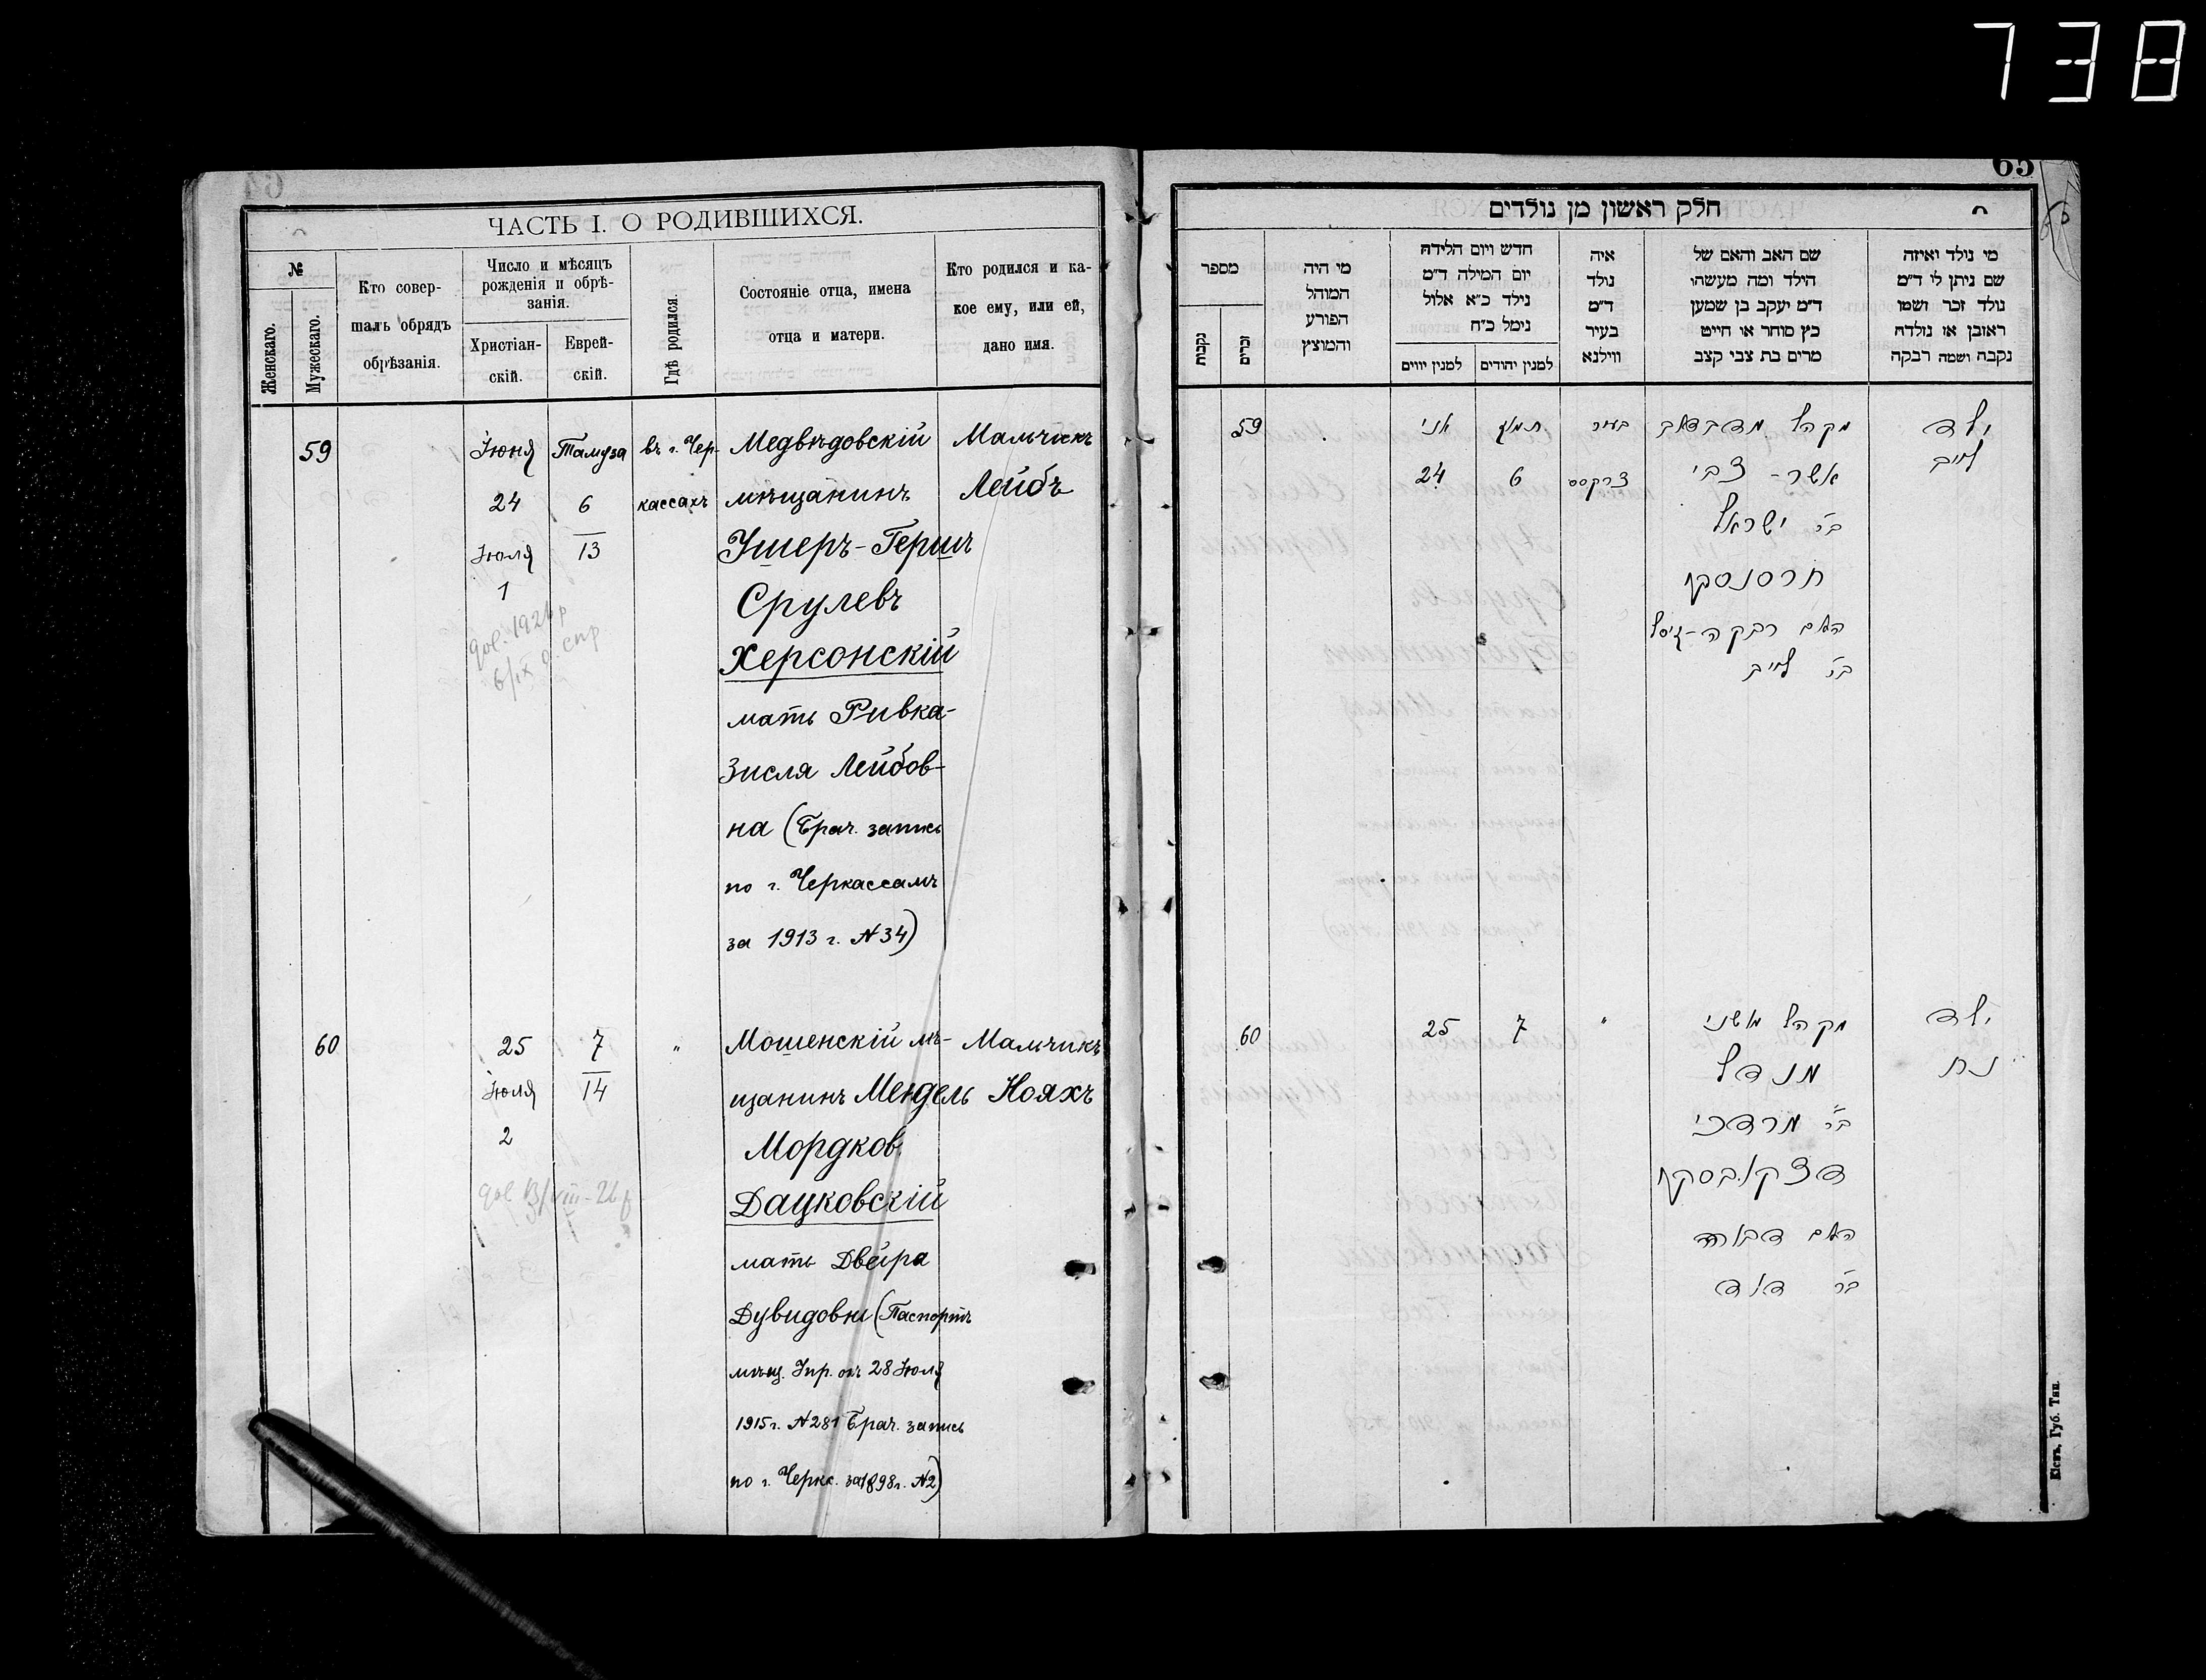 738
ЧАСТЬ I. О РОДИВШИХСЯ.
№
Женскаго.
Мужескаго.
Кто совер-
шалъ обрядъ
обрѣзанія.
Число и мѣсяцъ
рожденія и обрѣ-
занія.
Христіан-
скій.
Еврей-
скій.
Гдѣ родился.
Состояніе отца, имена
отца и матери.
Кто родился и ка-
кое ему, или ей,
дано имя.
59
Іюня
24
Іюля
1
Тамуза
6
13
въ г. Чер-
кассахъ
Медвѣдовскій
мѣщанинъ
Ушеръ-Гершъ
Срулевъ
Херсонскій
мать Ривка-
Зисля Лейбов-
на (Брач. запись
по г. Черкассамъ
за 1913 г. № 34)
Мальчикъ
Лейбъ
60
25
Іюля
2
7
14
"
Мошенскій мѣ-
щанинъ Мендель
Мордков.
Дацковскій
мать Двейра
Дувидовна (Паспортъ
мѣщ. Упр. отъ 28 Іюля
1915 г. № 281 Брач. запись
по г. Черкс. за 1898 г. № 2)
Мальчикъ
Нояхъ
65
חלק ראשון מן נולדים
מספר
נקבות
זכרים
מי היה
המוהל
הפורע
והמוצץ
חדש ויום הלידה
יום המילה ד״מ
נילד כ״א אלול
נימל כ״ח
למנין יווים
למנין יהודים
איה
נולד
ד״מ
בעיר
ווילנא
שם האב והאם של
הילד ומה מעשהו
ד״מ יעקב בן שמען
כץ סוחר או חייט
מרים בת צבי קצב
מי נולד ואיזה
שם ניתן לו ד״מ
נולד זכר ושמו
ראובן או נולדה
נקבה ושמה רבקה
59
יוני
24
תמוז
6
בעיר
צרקסס
מקהל מדבדאב
אשר-צבי
ב״ר ישראל
חרסנסקי
האם רבקה-זיסל
ב״ר לייב
ילד
לייב
60
25
7
"
מקהל משני
מנדל
ב״ר מרדכי
דצקובסקי
האם דבורה
ב״ר דוד
ילד
נח
Кіевъ, Губ. Тип.